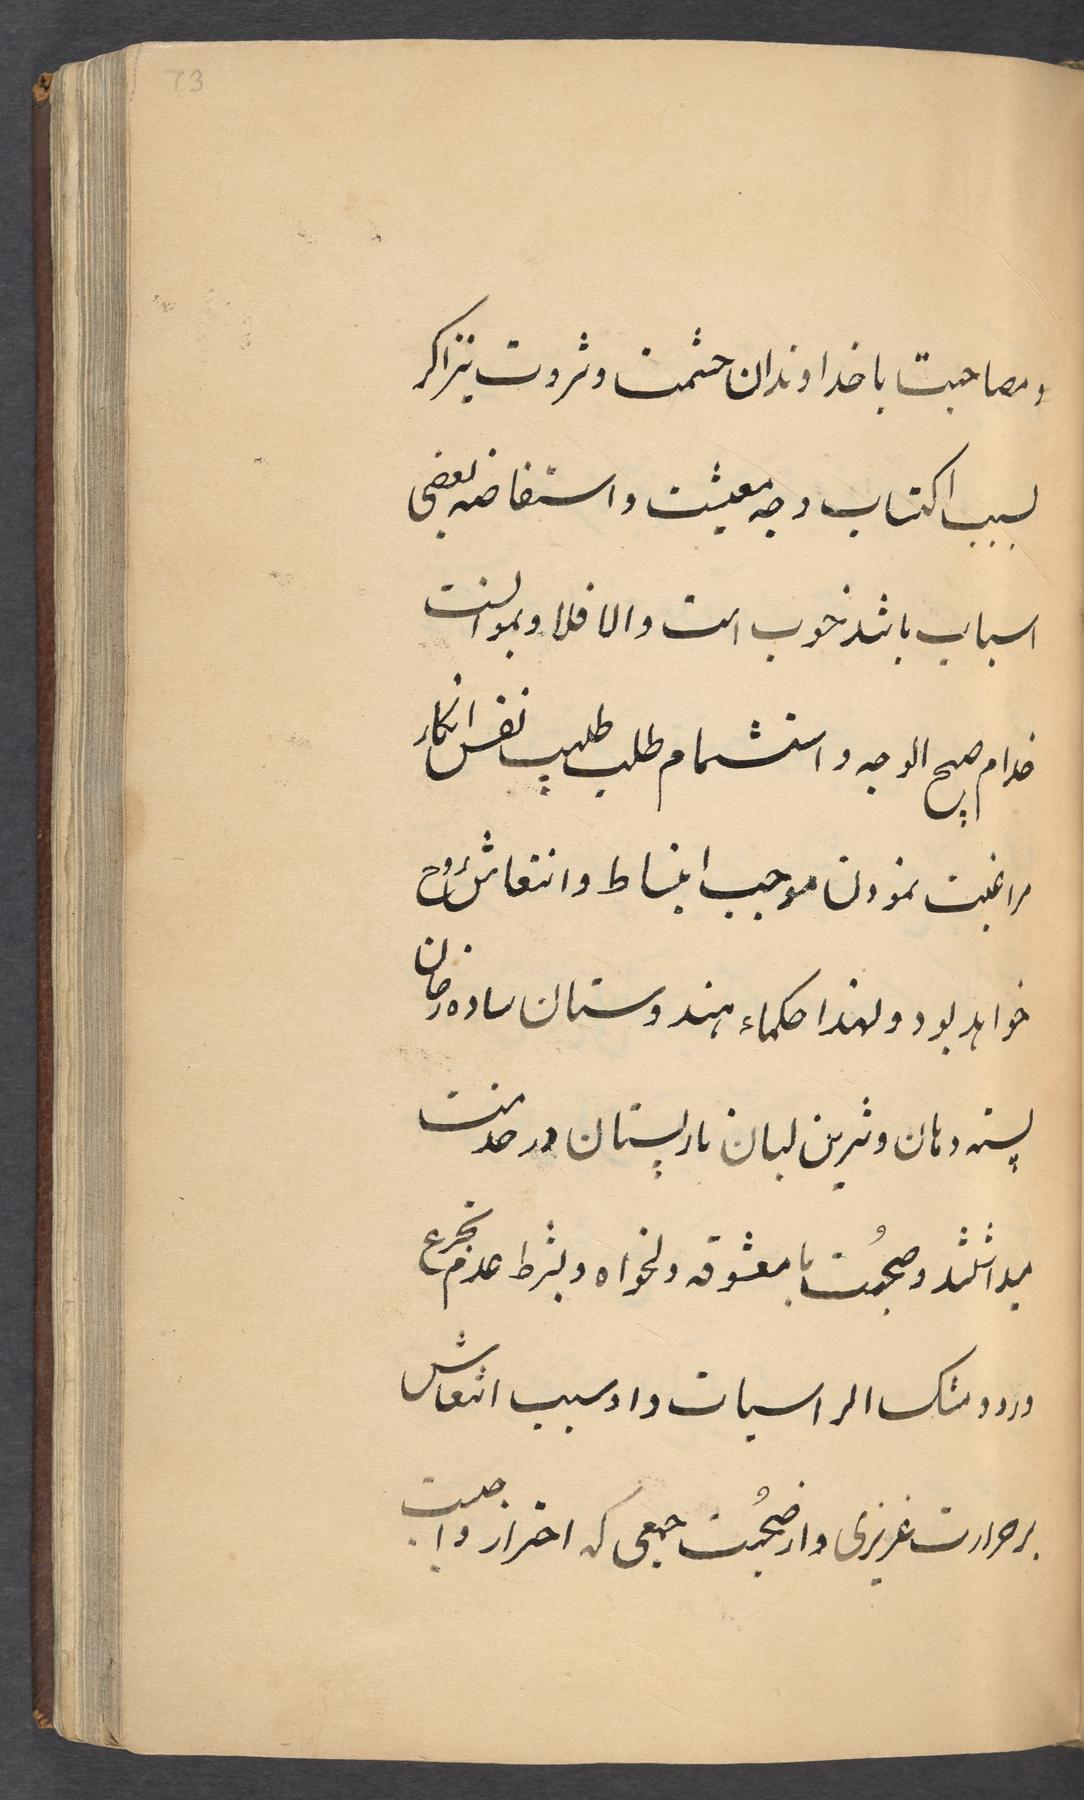 73
و مصاحبت با خداوندان حشمت و ثروت نیز اکر
بسبب اکتساب وجه معیشت و استفاضه بعضی
اسباب باشد خوب است والا فلا و بموانست
خدام صبیح الوجه و استشمام طلب طیب نفس انکار
مراغبت نمودن موجب انبساط و انتعاش روح
خواهد بود و لهذا حکماء هندوستان ساده رخان
پسته دهان و شیرین لبان نار پستان در خدمت
میداشتند و صحبُت با معشوقه دلخواه و بشرط عدم
درد و و او سبب انتعاش
بر حرارت غریزی و از صحُبت جمعی که احتراز واجبست